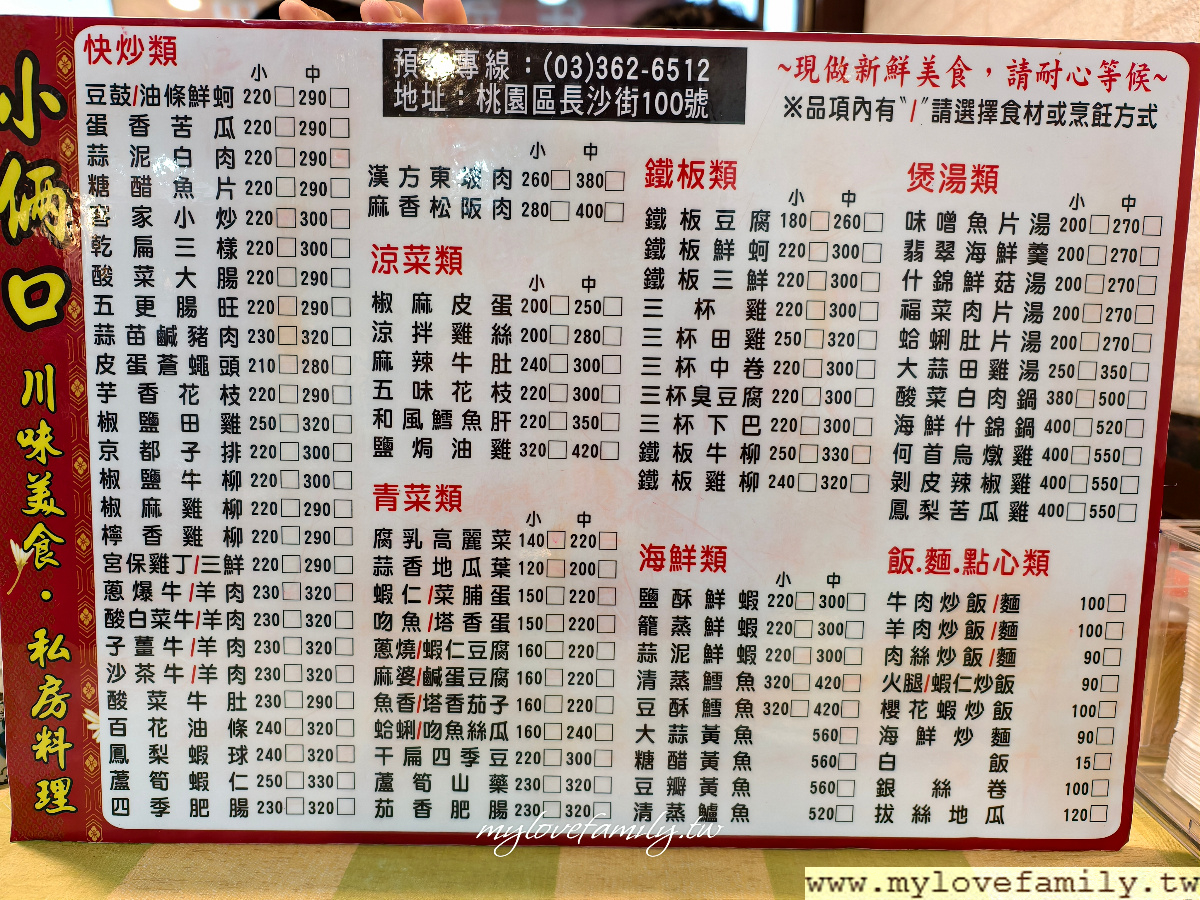 小倆口
川味美食·私房料理
快炒類
小 中
豆鼓/油條鮮蚵 220 290
蛋香苦瓜 220 290
蒜泥白肉 220 290
糖醋魚片 220 290
客家小炒 220 300
乾扁三樣 220 300
酸菜大腸 220 290
五更腸旺 220 290
蒜苗鹹豬肉 230 320
皮蛋蒼蠅頭 210 280
芋香花枝 220 290
椒鹽田雞 250 320
京都子排 220 300
椒鹽牛柳 220 300
椒麻雞柳 220 290
檸香雞柳 220 290
宮保雞丁/三鮮 220 290
蔥爆牛/羊肉 230 320
酸白菜牛/羊肉 230 320
子薑牛/羊肉 230 320
沙茶牛/羊肉 230 320
酸菜牛肚 230 290
百花油條 240 320
鳳梨蝦球 240 320
蘆筍蝦仁 250 330
四季肥腸 230 320
預 專線：(03)362-6512
地址：桃園區長沙街100號
小 中
漢方東坡肉 260 380
麻香松阪肉 280 400
涼菜類
小 中
椒麻皮蛋 200 250
涼拌雞絲 200 280
麻辣牛肚 240 300
五味花枝 220 300
和風鱈魚肝 220 350
鹽焗油雞 320 420
青菜類
小 中
腐乳高麗菜 140 220
蒜香地瓜葉 120 200
蝦仁/菜脯蛋 150 220
吻魚/塔香蛋 150 220
蔥燒/蝦仁豆腐 160 220
麻婆/鹹蛋豆腐 160 220
魚香/塔香茄子 160 220
蛤蜊/吻魚絲瓜 160 240
干扁四季豆 220 300
蘆筍山藥 230 320
茄香肥腸 230 320
~現做新鮮美食，請耐心等候~
※品項內有"/"請選擇食材或烹飪方式
鐵板類
小 中
鐵板豆腐 180 260
鐵板鮮蚵 220 300
鐵板三鮮 220 300
三杯雞 220 300
三杯田雞 250 320
三杯中卷 220 300
三杯臭豆腐 220 300
三杯下巴 220 300
鐵板牛柳 250 330
鐵板雞柳 240 320
海鮮類
小 中
鹽酥鮮蝦 220 300
籠蒸鮮蝦 220 300
蒜泥鮮蝦 220 300
清蒸鱈魚 320 420
豆酥鱈魚 320 420
大蒜黃魚 560
糖醋黃魚 560
豆瓣黃魚 560
清蒸鱸魚 520
煲湯類
小 中
味噌魚片湯 200 270
翡翠海鮮羹 200 270
什錦鮮菇湯 200 270
福菜肉片湯 200 270
蛤蜊肚片湯 200 270
大蒜田雞湯 250 350
酸菜白肉鍋 380 500
海鮮什錦鍋 400 520
何首烏燉雞 400 550
剝皮辣椒雞 400 550
鳳梨苦瓜雞 400 550
飯.麵.點心類
牛肉炒飯/麵 100
羊肉炒飯/麵 100
肉絲炒飯/麵 90
火腿/蝦仁炒飯 90
櫻花蝦炒飯 100
海鮮炒麵 90
白飯 15
銀絲卷 100
拔絲地瓜 120
mylovefamily.tw
www.mylovefamily.tw